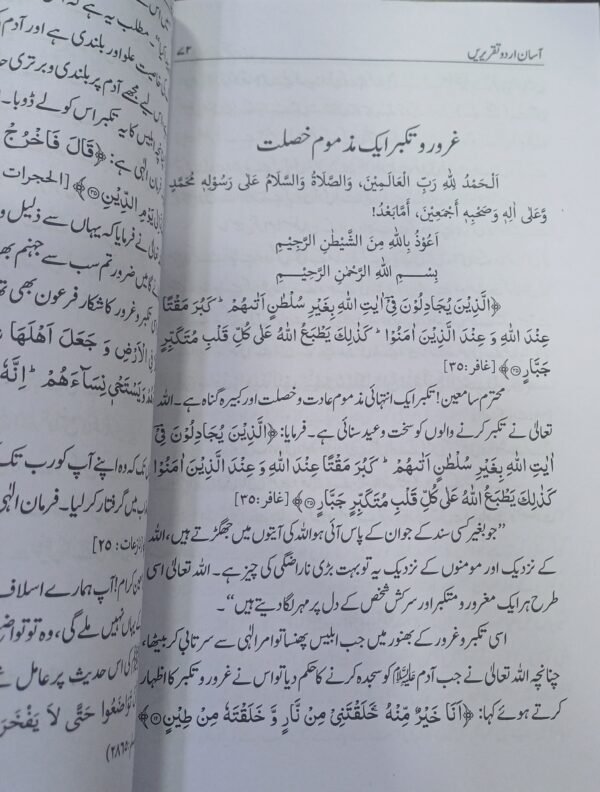 آسان اردو تقریریں
۷۲
غرور و تکبر ایک مذموم خصلت
اَلْحَمْدُ لِلّٰهِ رَبِّ الْعَالَمِيْنَ، وَالصَّلَاةُ وَالسَّلَامُ عَلٰى رَسُوْلِهٖ مُحَمَّدٍ
وَّعَلٰى اٰلِهٖ وَصَحْبِهٖ أَجْمَعِيْنَ، أَمَّابَعْدُ!
اَعُوْذُ بِاللّٰهِ مِنَ الشَّيْطٰنِ الرَّجِيْمِ
بِسْـــمِ اللّٰهِ الرَّحْمٰنِ الرَّحِيْـــمِ
﴿الَّذِيْنَ يُجَادِلُوْنَ فِيْٓ اٰيٰتِ اللّٰهِ بِغَيْرِ سُلْطٰنٍ اَتٰىهُمْ ؕ كَبُرَ مَقْتًا
عِنْدَ اللّٰهِ وَ عِنْدَ الَّذِيْنَ اٰمَنُوْا ؕ كَذٰلِكَ يَطْبَعُ اللّٰهُ عَلٰى كُلِّ قَلْبِ مُتَكَبِّرٍ
جَبَّارٍ ﴿۳۵﴾ [غافر:۳۵]
محترم سامعین! تکبر ایک انتہائی مذموم عادت و خصلت اور کبیرہ گناہ ہے۔ اللہ
تعالیٰ نے تکبر کرنے والوں کو سخت وعید سنائی ہے۔ فرمایا: ﴿الَّذِيْنَ يُجَادِلُوْنَ فِيْٓ
اٰيٰتِ اللّٰهِ بِغَيْرِ سُلْطٰنٍ اَتٰىهُمْ ؕ كَبُرَ مَقْتًا عِنْدَ اللّٰهِ وَ عِنْدَ الَّذِيْنَ اٰمَنُوْا ؕ
كَذٰلِكَ يَطْبَعُ اللّٰهُ عَلٰى كُلِّ قَلْبِ مُتَكَبِّرٍ جَبَّارٍ ﴿۳۵﴾ [غافر:۳۵]
”جو بغیر کسی سند کے جو ان کے پاس آئی ہو اللہ کی آیتوں میں جھگڑتے ہیں، اللہ
کے نزدیک اور مومنوں کے نزدیک یہ تو بہت بڑی ناراضگی کی چیز ہے۔ اللہ تعالیٰ اسی
طرح ہر ایک مغرور و متکبر اور سرکش شخص کے دل پر مہر لگا دیتے ہیں“۔
اسی تکبر و غرور کے بھنور میں جب ابلیس پھنسا تو امر الٰہی سے سرتابی کر بیٹھا،
چنانچہ اللہ تعالیٰ نے جب آدم علیہ السلام کو سجدہ کرنے کا حکم دیا تو اس نے غرور و تکبر کا اظہار
کرتے ہوئے کہا: ﴿اَنَا خَيْرٌ مِّنْهُ خَلَقْتَنِيْ مِنْ نَّارٍ وَّ خَلَقْتَهٗ مِنْ طِيْنٍ ﴿۱۲﴾
مطلب یہ ہے کہ
علو اور بلندی ہے اور آدم
لیے مجھے آدم پر بلندی و برتری
ابلیس کا یہ تکبر اس کو لے ڈوبا۔
الٰہی ہے: ﴿قَالَ فَاخْرُجْ
يَوْمِ الدِّيْنِ ﴿۳۵﴾ [الحجرات
نے فرمایا کہ یہاں سے ذلیل و
میں ضرور تم سب سے جہنم بھر
تکبر و غرور کا شکار فرعون بھی تھا
فِي الْاَرْضِ وَ جَعَلَ اَهْلَهَا
وَيَسْتَحْيٖ نِسَآءَهُمْ ؕ اِنَّهٗ
کہ وہ اپنے آپ کو رب تک
میں گرفتار کر لیا۔ فرمان الٰہی
۲۵]
کرام! آپ ہمارے اسلاف
یہاں نہیں ملے گی، وہ تو تواضع
کی اس حدیث پر عامل
تَوَاضَعُوْا حَتّٰى لَا يَفْخَرَ
۲۸۶۵)